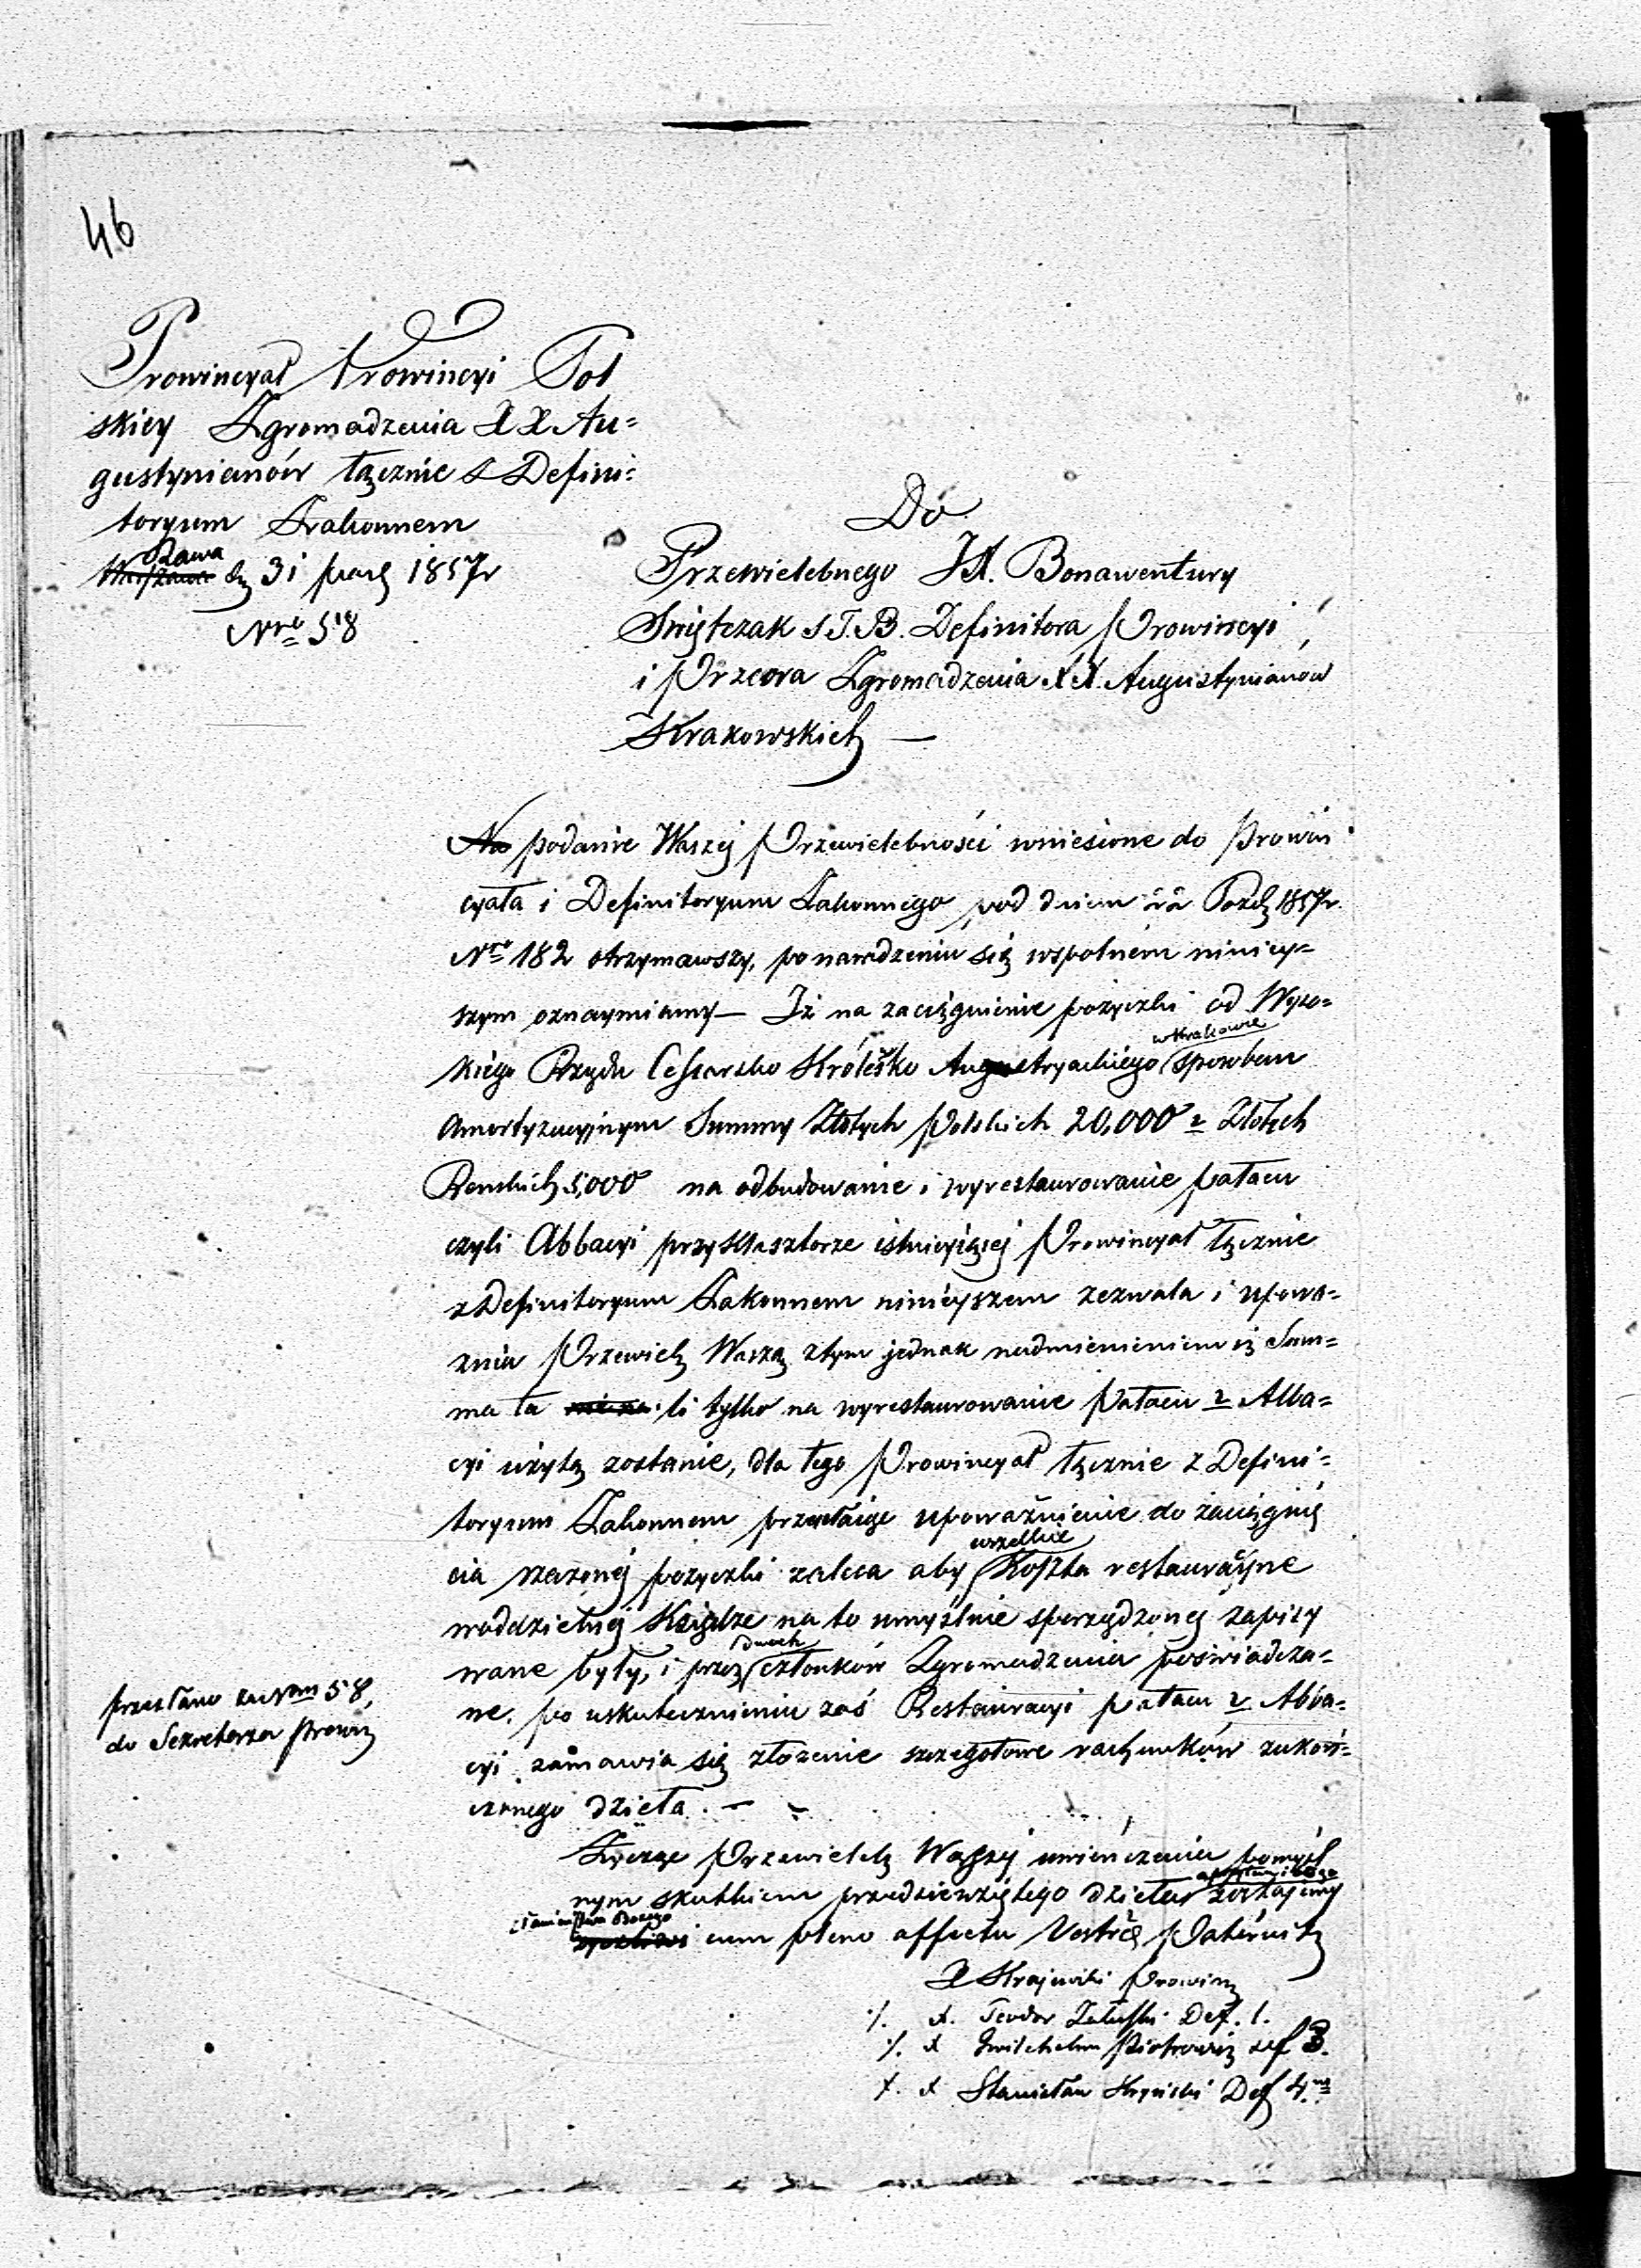 46
Prowincyał Prowincyi Pol
skiey Zgromadzenia XX Au=
gustynianów łącznie z Defini=
toryum Zakonnem
Rawa
Warszawa d. 31 paźd 1857r
Nro 58
Do
Przewielebnego JX. Bonawentury
Swiętczak S.T.B. Definitora Prowincyi
i Przeora Zgromadzenia XX. Augustynianów
Krakowskich —
Na podanie Waszej Przewielebności wniesione do Prowin
cyała i Definitoryum Zakonnego pod dniem 22 Paźdz 1857r.
Nro 182 otrzymawszy, po naradzeniu się wspolnem niniey=
szym oznaymiamy — Iż na zaciągnienie pożyczki od Wyso=
w Krakowie
kiego Rządu Cesarsko Królesko Augustryackiego sposobem
Amortyzacyjnym Summy Złotych Polskich 20,000 v Złotych
Renskich 5,000 na odbudowanie i wyrestaurowanie pałacu
czyli Abbacyi przy Klasztorze istnieyącej Prowincyał łącznie
z Definitoryum Zakonnem ninieyszem zezwala i upowa=
znia Przewiel Waszą z tym jednak nadmienieniem iż Sum=
ma ta li tylko na wyrestaurowanie Pałacu v Abba=
cyi użytą zostanie, dla tego Prowincyał łącznie z Defini=
toryum Zakonnem przesełaiąc upoważnienie do zaciągnię
wszelkie
cia rzeczonej pożyczki zaleca aby Koszta restauracyjne
w oddzielnej Książce na to umyślnie sporządzonej zapisy
dwoch
wane były, i przez członków Zgromadzenia poswiadcza=
ne. po uskutecznieniu zaś Restauracyi pałacu v Abba=
cyi zamawia się złożenie szczegołowe rachunków zukoń=
czonego dzieła. —
przesłano za Nrm 58,
do Sekretarza Prowin
Życząc Przewieleb Waszej uwieńczenia pomyśl
nym skutkiem przedsiewziętego dzieła zostajemy
cum pleno affectu Vestræ Paternit
X Krajewski Prowin
./. X. Teodor Załuski Def. 1.
./. X Gwilchelm Piotrowicz def 3.
./. X Stanisław Def 4.